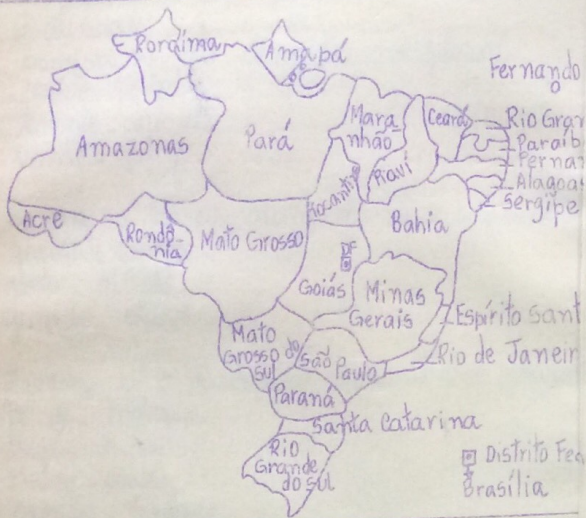 Roraima
Amapá
Fernando
Amazonas
Pará
Mara-
nhão
Ceará
Rio Gran
Paraíb
Pernam
Alagoas
Sergipe
Piauí
Tocantins
Acre
Rondô-
nia
Mato Grosso
Bahia
DF
Goiás
Minas
Gerais
Espírito Sant
Mato
Grosso do
Sul
São
Paulo
Rio de Janeir
Paraná
Santa Catarina
Rio
Grande
do Sul
Distrito Fed
Brasília